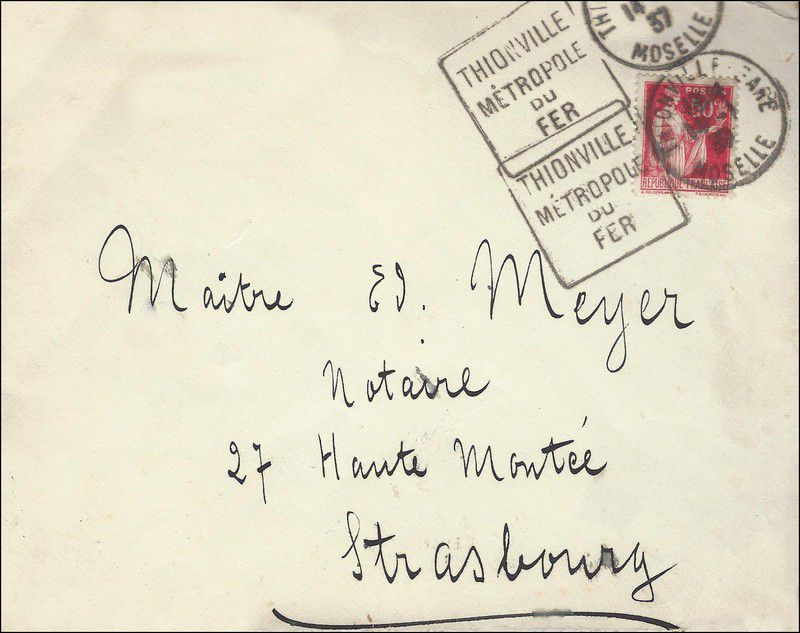 THIONVILLE
MÉTROPOLE
DU
FER
THIONVILLE
MÉTROPOLE
DU
FER
14
37
MOSELLE
GARE
MOSELLE
POSTE
REPUBLIQUE FRANÇAISE
Maître Ed. Meyer
Notaire
27 Haute Montée
Strasbourg